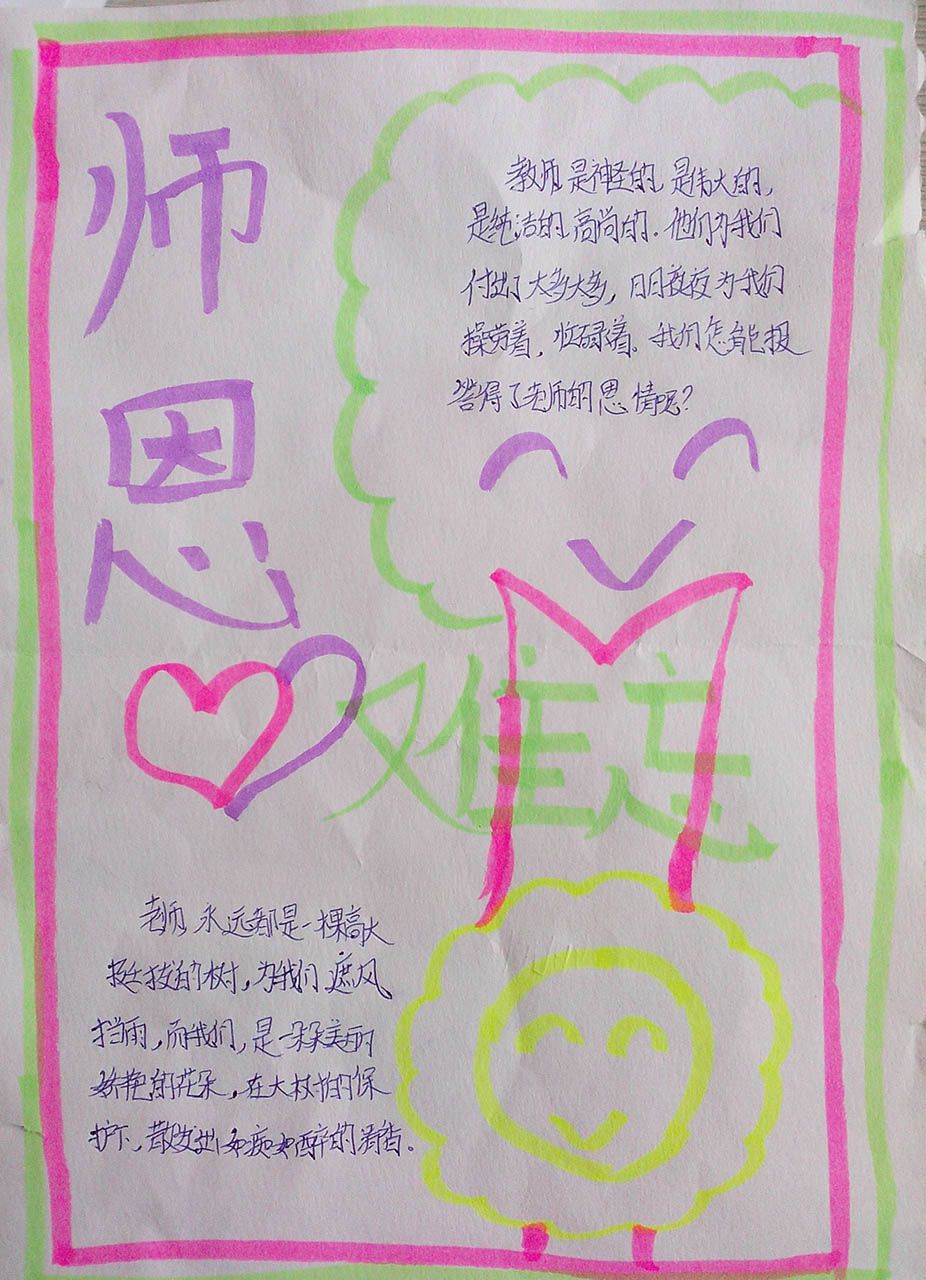 师
恩
难忘
教师是神圣的,是伟大的,
是纯洁的,高尚的.他们为我们
付出了太多太多,日日夜夜为我们
操劳着,忙碌着。我们怎能报
答得了老师的恩情呢?
老师永远都是一棵高大
挺拔的树,为我们遮风
挡雨,而我们,是一朵朵美丽
娇艳的花朵,在大树的保
护下,散发出如痴如醉的清香。